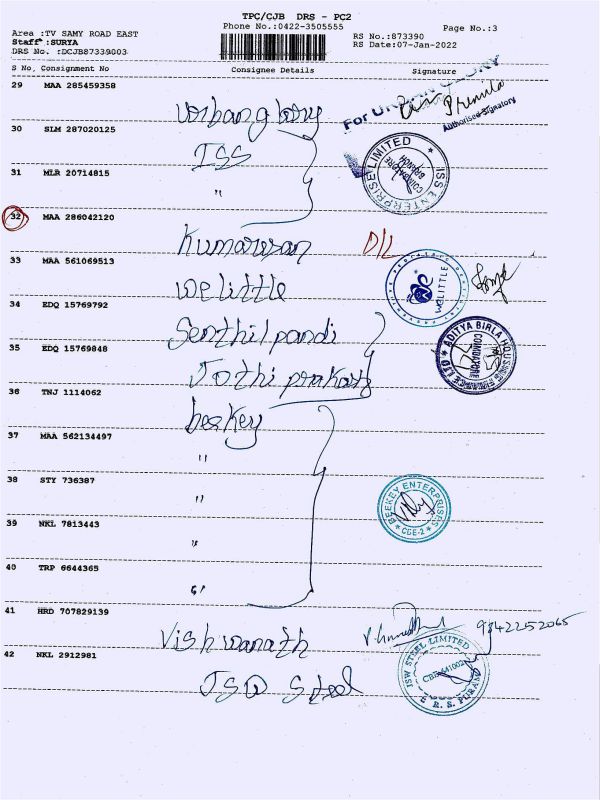 TPC/CJB DRS - PC2
Phone No.:0422-3505555
Page No.:3
Area :TV SAMY ROAD EAST
Staff :SURYA
DRS No. :DCJB87339003
RS No.:873390
RS Date:07-Jan-2022
S No, Consignment No Consignee Details Signature
29 MAA 285459358
For URBAN
Premila
Authorised Signatory
30 SLM 287020125
ISS
ISS ENTERPRISE LIMITED
COIMBATORE
BRANCH
31 MLR 20714815
"
32 MAA 286042120
Kumaresan D/L
33 MAA 561069513
Welittle
WELITTLE
34 EDQ 15769792
Senthil pandi
35 EDQ 15769848
Jothi prakash
ADITYA BIRLA HOUSING FINANCE LTD
COIMBATORE
36 TNJ 1114062
beekey
37 MAA 562134497
"
38 STY 736387
"
BEEKEY ENTERPRISES
CBE-2
39 NKL 7813443
"
40 TRP 6644365
"
41 HRD 707829139
Vishwanath
9842252065
42 NKL 2912981
JSW Steel
JSW STEEL LIMITED
CBE-641002
R. S. PURAM